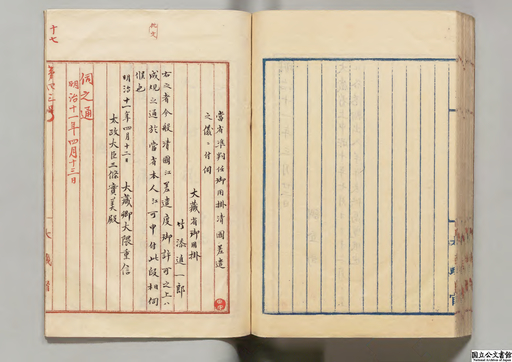 當省準判任御用掛清國差遣
之儀ニ付伺
大藏省御用掛
吹添道一郎
右之者今般清國江差遣度御許可之上ハ
成規之通於當省本人江可申付此段相伺
候也
明治十一年四月十二日
大藏卿大隈重信
太政大臣三條實美殿
伺之通
明治十一年四月十三日
十七
大藏省
国立公文書館
National Archives of Japan